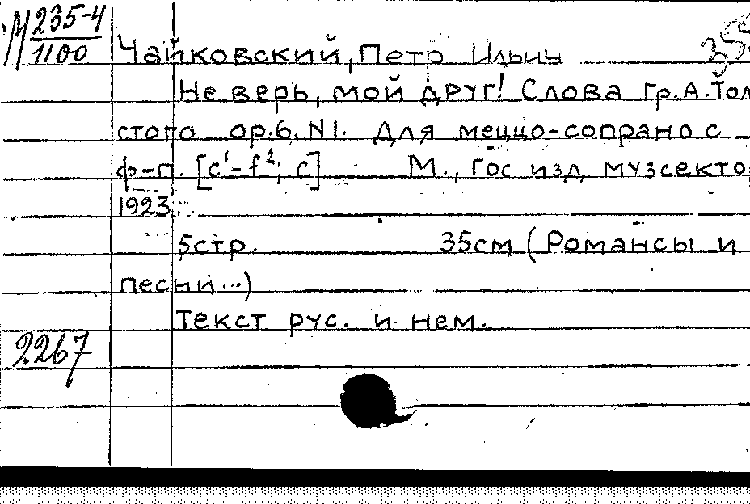 М 235-4
1100
Чайковский, Петр Ильич
Не верь, мой друг! Слова гр. А. Тол
стого op.6, N1. Для меццо-сопрано с
ф-п. [c¹-f²; c] М., Гос изд, музсекто
1923
5стр. 35см (Романсы и
песни...)
Текст рус. и нем.
2267